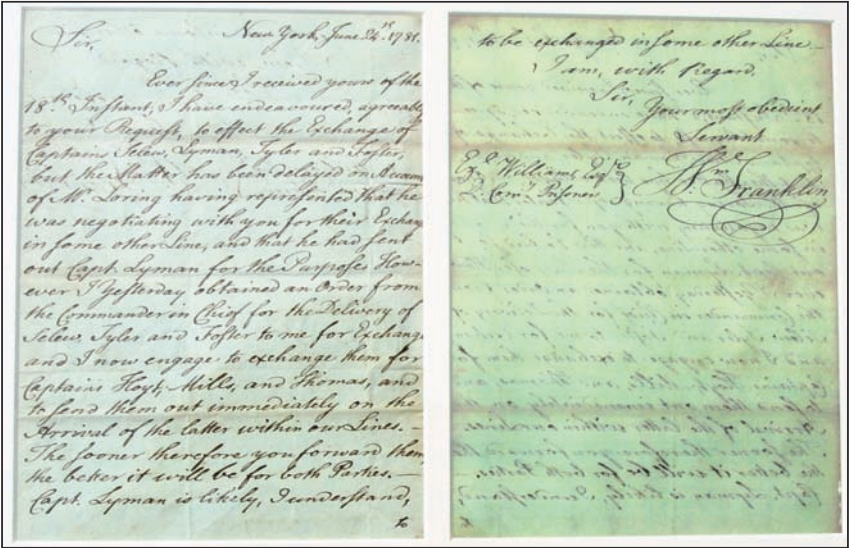 New York, June 24th. 1781.
Sir,
Ever since I received yours of the
18th Instant, I have endeavoured, agreeably
to your Request, to effect the Exchange of
Captains Selew, Lyman, Tyler and Foster,
but the Matter has been delayed on Account
of Mr. Loring having represented that he
was negotiating with you for their Exchange
in some other Line, and that he had sent
out Capt. Lyman for the Purpose. How-
ever I Yesterday obtained an Order from
the Commander in Chief for the Delivery of
Selew, Tyler and Foster to me for Exchange
and I now engage to exchange them for
Captains Hoyt, Mills, and Thomas, and
to send them out immediately on the
Arrival of the latter within our Lines. —
The sooner therefore you forward them
the better it will be for both Parties. —
Capt. Lyman is likely, I understand,
to
to be exchanged in some other Line. —
I am, with Regard,
Sir,
Your most obedient
Servant
Wm. Franklin
Williams Esqr.
D. Comy. Prisoner